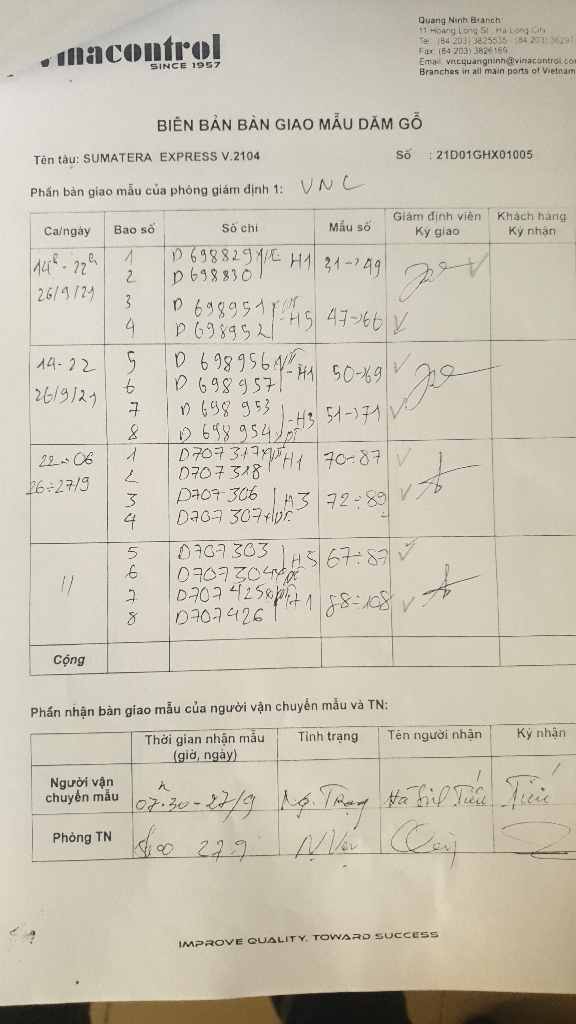 vinacontrol
SINCE 1957
Quang Ninh Branch:
11 Hoang Long St. Ha Long City
Tel: (84.203) 3825535 - (84.203) 36297
Fax: (84.203) 3826169
Email: vncquangninh@vinacontrol.co
Branches in all main ports of Vietnam
BIÊN BẢN BÀN GIAO MẪU DĂM GỖ
Tên tàu: SUMATERA EXPRESS V.2104 Số : 21D01GHX01005
Phần bàn giao mẫu của phòng giám định 1: VNC
Ca/ngày Bao số Số chì Mẫu số Giám định viên Ký giao Khách hàng Ký nhận
14h - 22h 1 D 698829 H1 31->49
26/9/21 2 D 698830
3 D 698951 H5 47->66
4 D 698952
14-22 5 D 698956 H1 50->69
26/9/21 6 D 698957
7 D 698 953 H3 51->71
8 D 698 954
22-06 1 D707317 H1 70÷87
26÷27/9 2 D707318
3 D707306 H3 72÷89
4 D707307
11 5 D707303 H5 67÷87
6 D707304
7 D707425 H1 88÷108
8 D707426
Cộng
Phần nhận bàn giao mẫu của người vận chuyển mẫu và TN:
Thời gian nhận mẫu (giờ, ngày) Tình trạng Tên người nhận Ký nhận
Người vận chuyển mẫu 07h30 - 27/9 Ng. Trạng Tiến Tiến
Phòng TN 27.9 N.Vẹn
IMPROVE QUALITY, TOWARD SUCCESS